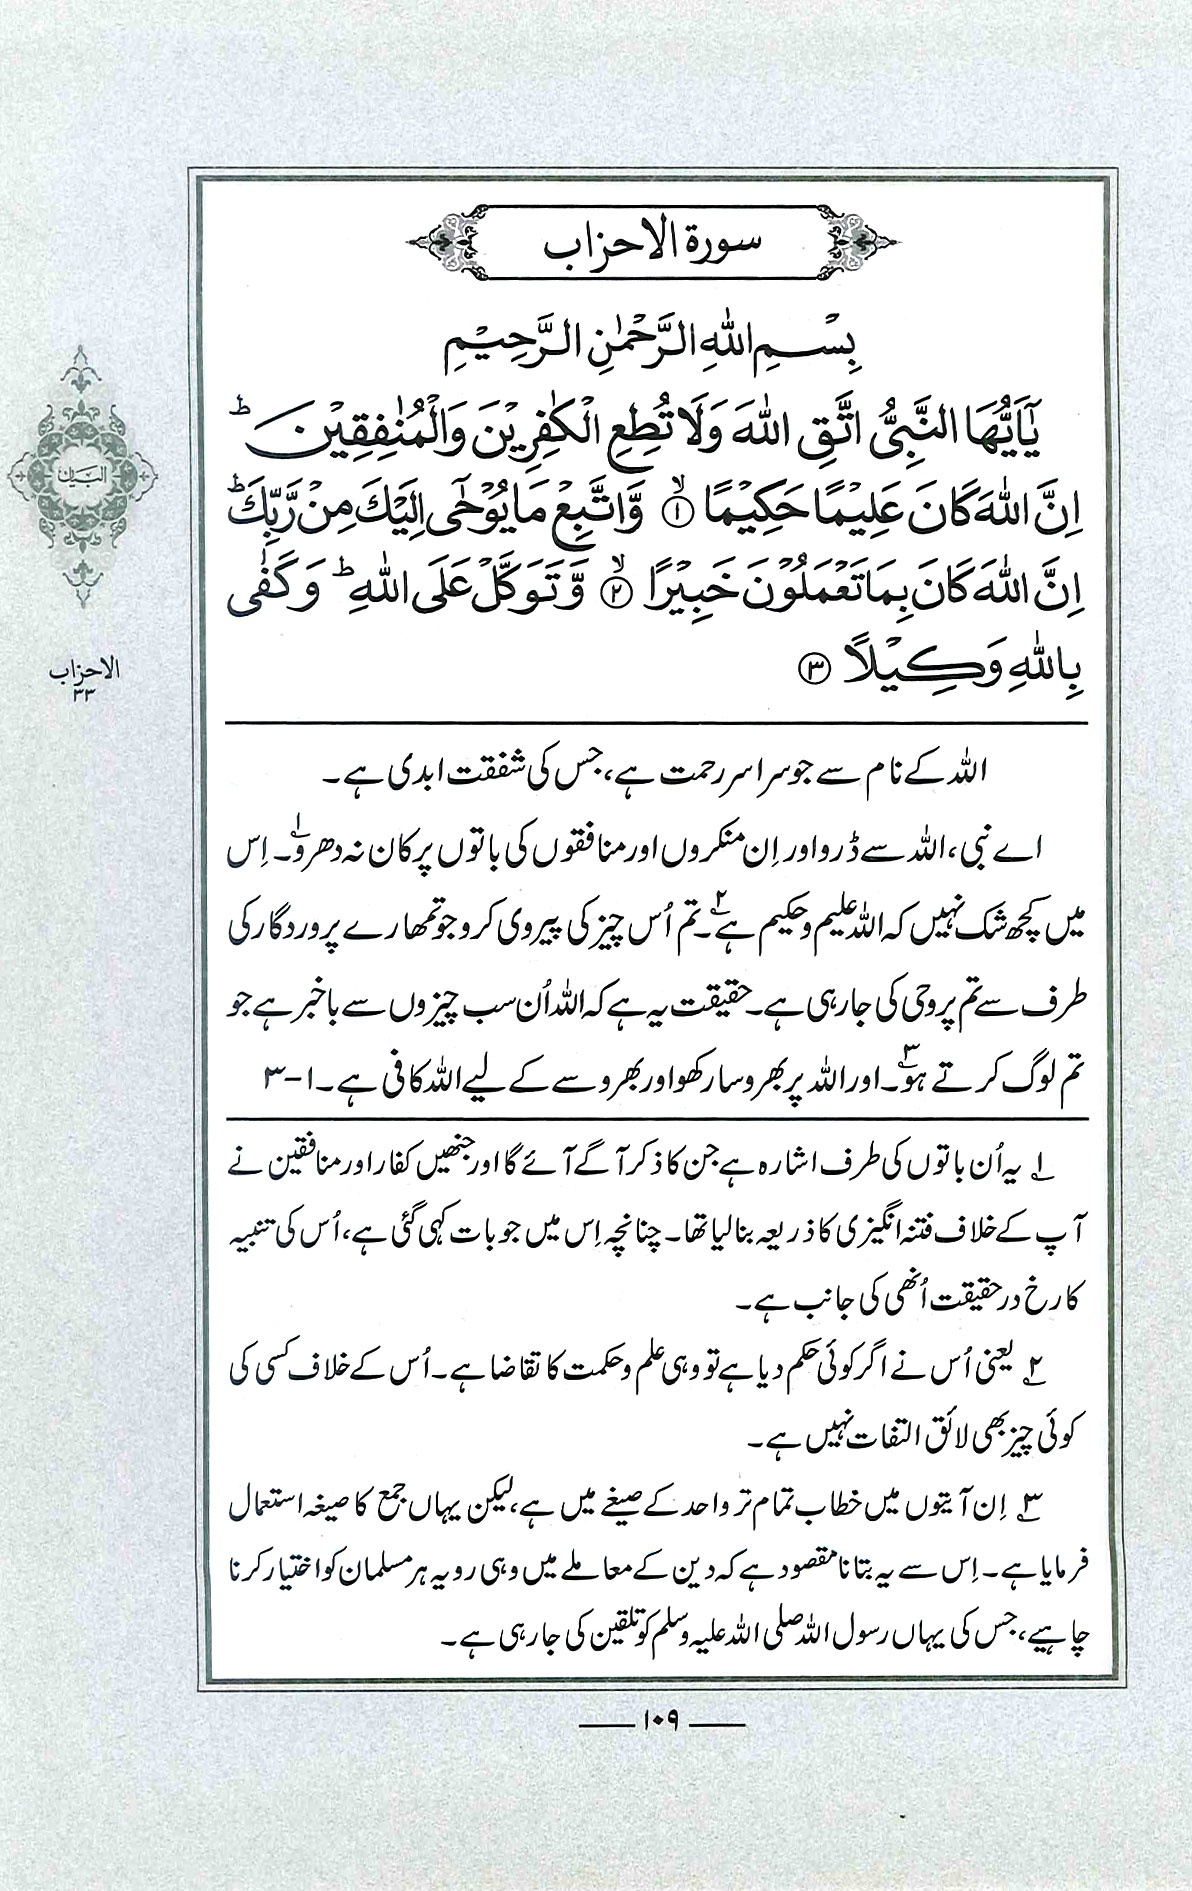 سورة الاحزاب
بِسْمِ اللّٰهِ الرَّحْمٰنِ الرَّحِيْمِ
يٰٓاَيُّهَا النَّبِىُّ اتَّقِ اللّٰهَ وَلَا تُطِعِ الْكٰفِرِيْنَ وَالْمُنٰفِقِيْنَ ؕ
اِنَّ اللّٰهَ كَانَ عَلِيْمًا حَكِيْمًا ۙ﴿۱﴾ وَّاتَّبِعْ مَا يُوْحٰٓى اِلَيْكَ مِنْ رَّبِّكَ ؕ
اِنَّ اللّٰهَ كَانَ بِمَا تَعْمَلُوْنَ خَبِيْرًا ۙ﴿۲﴾ وَّتَوَكَّلْ عَلَى اللّٰهِ ؕ وَكَفٰى
بِاللّٰهِ وَكِيْلًا ﴿۳﴾
اللہ کے نام سے جو سراسر رحمت ہے، جس کی شفقت ابدی ہے۔
اے نبی، اللہ سے ڈرو اور اِن منکروں اور منافقوں کی باتوں پر کان نہ دھرو۱۔ اِس
میں کچھ شک نہیں کہ اللہ علیم و حکیم ہے۲۔ تم اُس چیز کی پیروی کرو جو تمھارے پروردگار کی
طرف سے تم پر وحی کی جا رہی ہے۔ حقیقت یہ ہے کہ اللہ اُن سب چیزوں سے باخبر ہے جو
تم لوگ کرتے ہو۳۔ اور اللہ پر بھروسا رکھو اور بھروسے کے لیے اللہ کافی ہے۔ ۱-۳
۱ یہ اُن باتوں کی طرف اشارہ ہے جن کا ذکر آگے آئے گا اور جنھیں کفار اور منافقین نے
آپ کے خلاف فتنہ انگیزی کا ذریعہ بنا لیا تھا۔ چنانچہ اِس میں جو بات کہی گئی ہے، اُس کی تنبیہ
کا رخ درحقیقت اُنھی کی جانب ہے۔
۲ یعنی اُس نے اگر کوئی حکم دیا ہے تو وہی علم و حکمت کا تقاضا ہے۔ اُس کے خلاف کسی کی
کوئی چیز بھی لائق التفات نہیں ہے۔
۳ اِن آیتوں میں خطاب تمام تر واحد کے صیغے میں ہے، لیکن یہاں جمع کا صیغہ استعمال
فرمایا ہے۔ اِس سے یہ بتانا مقصود ہے کہ دین کے معاملے میں وہی رویہ ہر مسلمان کو اختیار کرنا
چاہیے، جس کی یہاں رسول اللہ صلی اللہ علیہ وسلم کو تلقین کی جا رہی ہے۔
۱۰۹
البیان
الاحزاب
۳۳